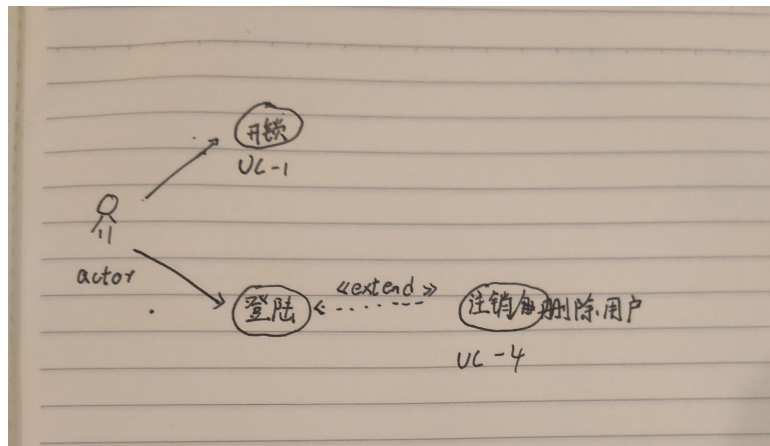 开锁
UC-1
actor
登陆
<<extend>>
注销 删除用户
UC-4